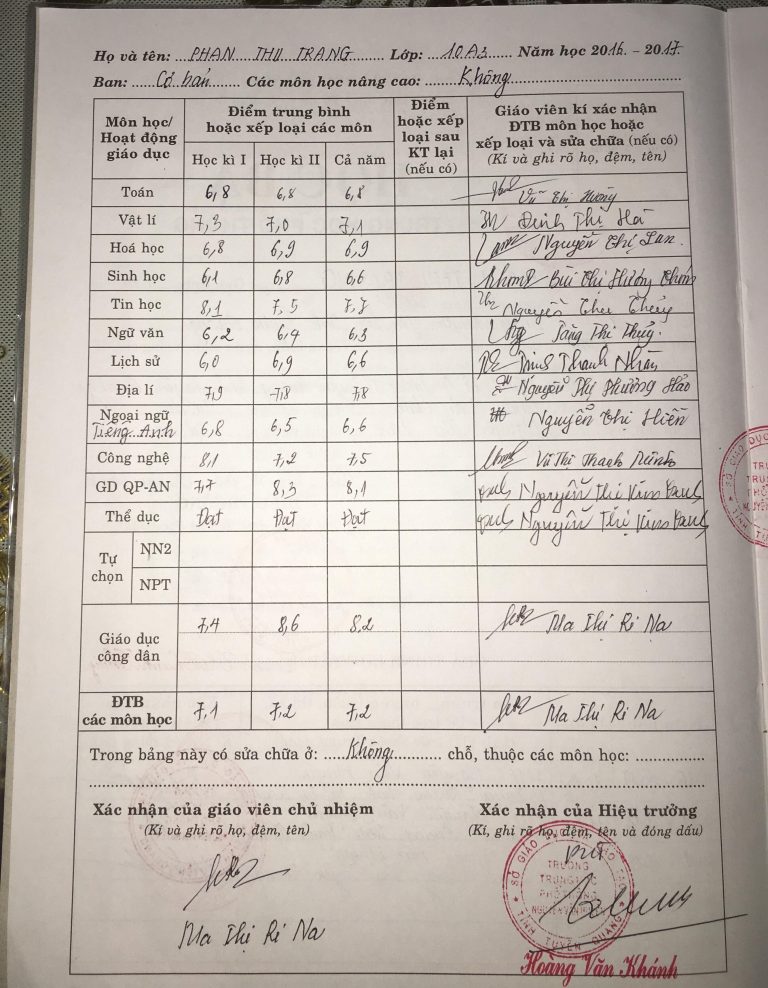 Họ và tên: PHAN THU TRANG Lớp: 10A3 Năm học 2016 - 2017
Ban: Cơ bản Các môn học nâng cao: Không
Môn học/ Hoạt động giáo dục
Điểm trung bình hoặc xếp loại các môn
Học kì I Học kì II Cả năm
Điểm hoặc xếp loại sau KT lại (nếu có)
Giáo viên kí xác nhận ĐTB môn học hoặc xếp loại và sửa chữa (nếu có) (Kí và ghi rõ họ, đệm, tên)
Toán 6,8 6,8 6,8 Vũ Thị Hường
Vật lí 7,3 7,0 7,1 Đinh Thị Hà
Hoá học 6,8 6,9 6,9 Nguyễn Thị Lan
Sinh học 6,1 6,8 6,6 Bùi Thị Hương
Tin học 8,1 7,5 7,7 Nguyễn Thu Thủy
Ngữ văn 6,2 6,4 6,3 Thị Thủy
Lịch sử 6,0 6,9 6,6 Trịnh Thanh Nhàn
Địa lí 7,9 7,8 7,8 Nguyễn Thị Phương Hảo
Ngoại ngữ Tiếng Anh 6,8 6,5 6,6 Nguyễn Thị Hiền
Công nghệ 8,1 7,2 7,5 Vũ Thị Thanh
GD QP-AN 7,7 8,3 8,1 Nguyễn Thị Kim
Thể dục Đạt Đạt Đạt Nguyễn Thị Kim
Tự chọn NN2
NPT
Giáo dục công dân 7,4 8,6 8,2 Ma Thị Ri Na
ĐTB các môn học 7,1 7,2 7,2 Ma Thị Ri Na
Trong bảng này có sửa chữa ở: Không chỗ, thuộc các môn học:
Xác nhận của giáo viên chủ nhiệm Xác nhận của Hiệu trưởng
(Kí và ghi rõ họ, đệm, tên) (Kí, ghi rõ họ, đệm, tên và đóng dấu)
Ma Thị Ri Na
Hoàng Văn Khánh